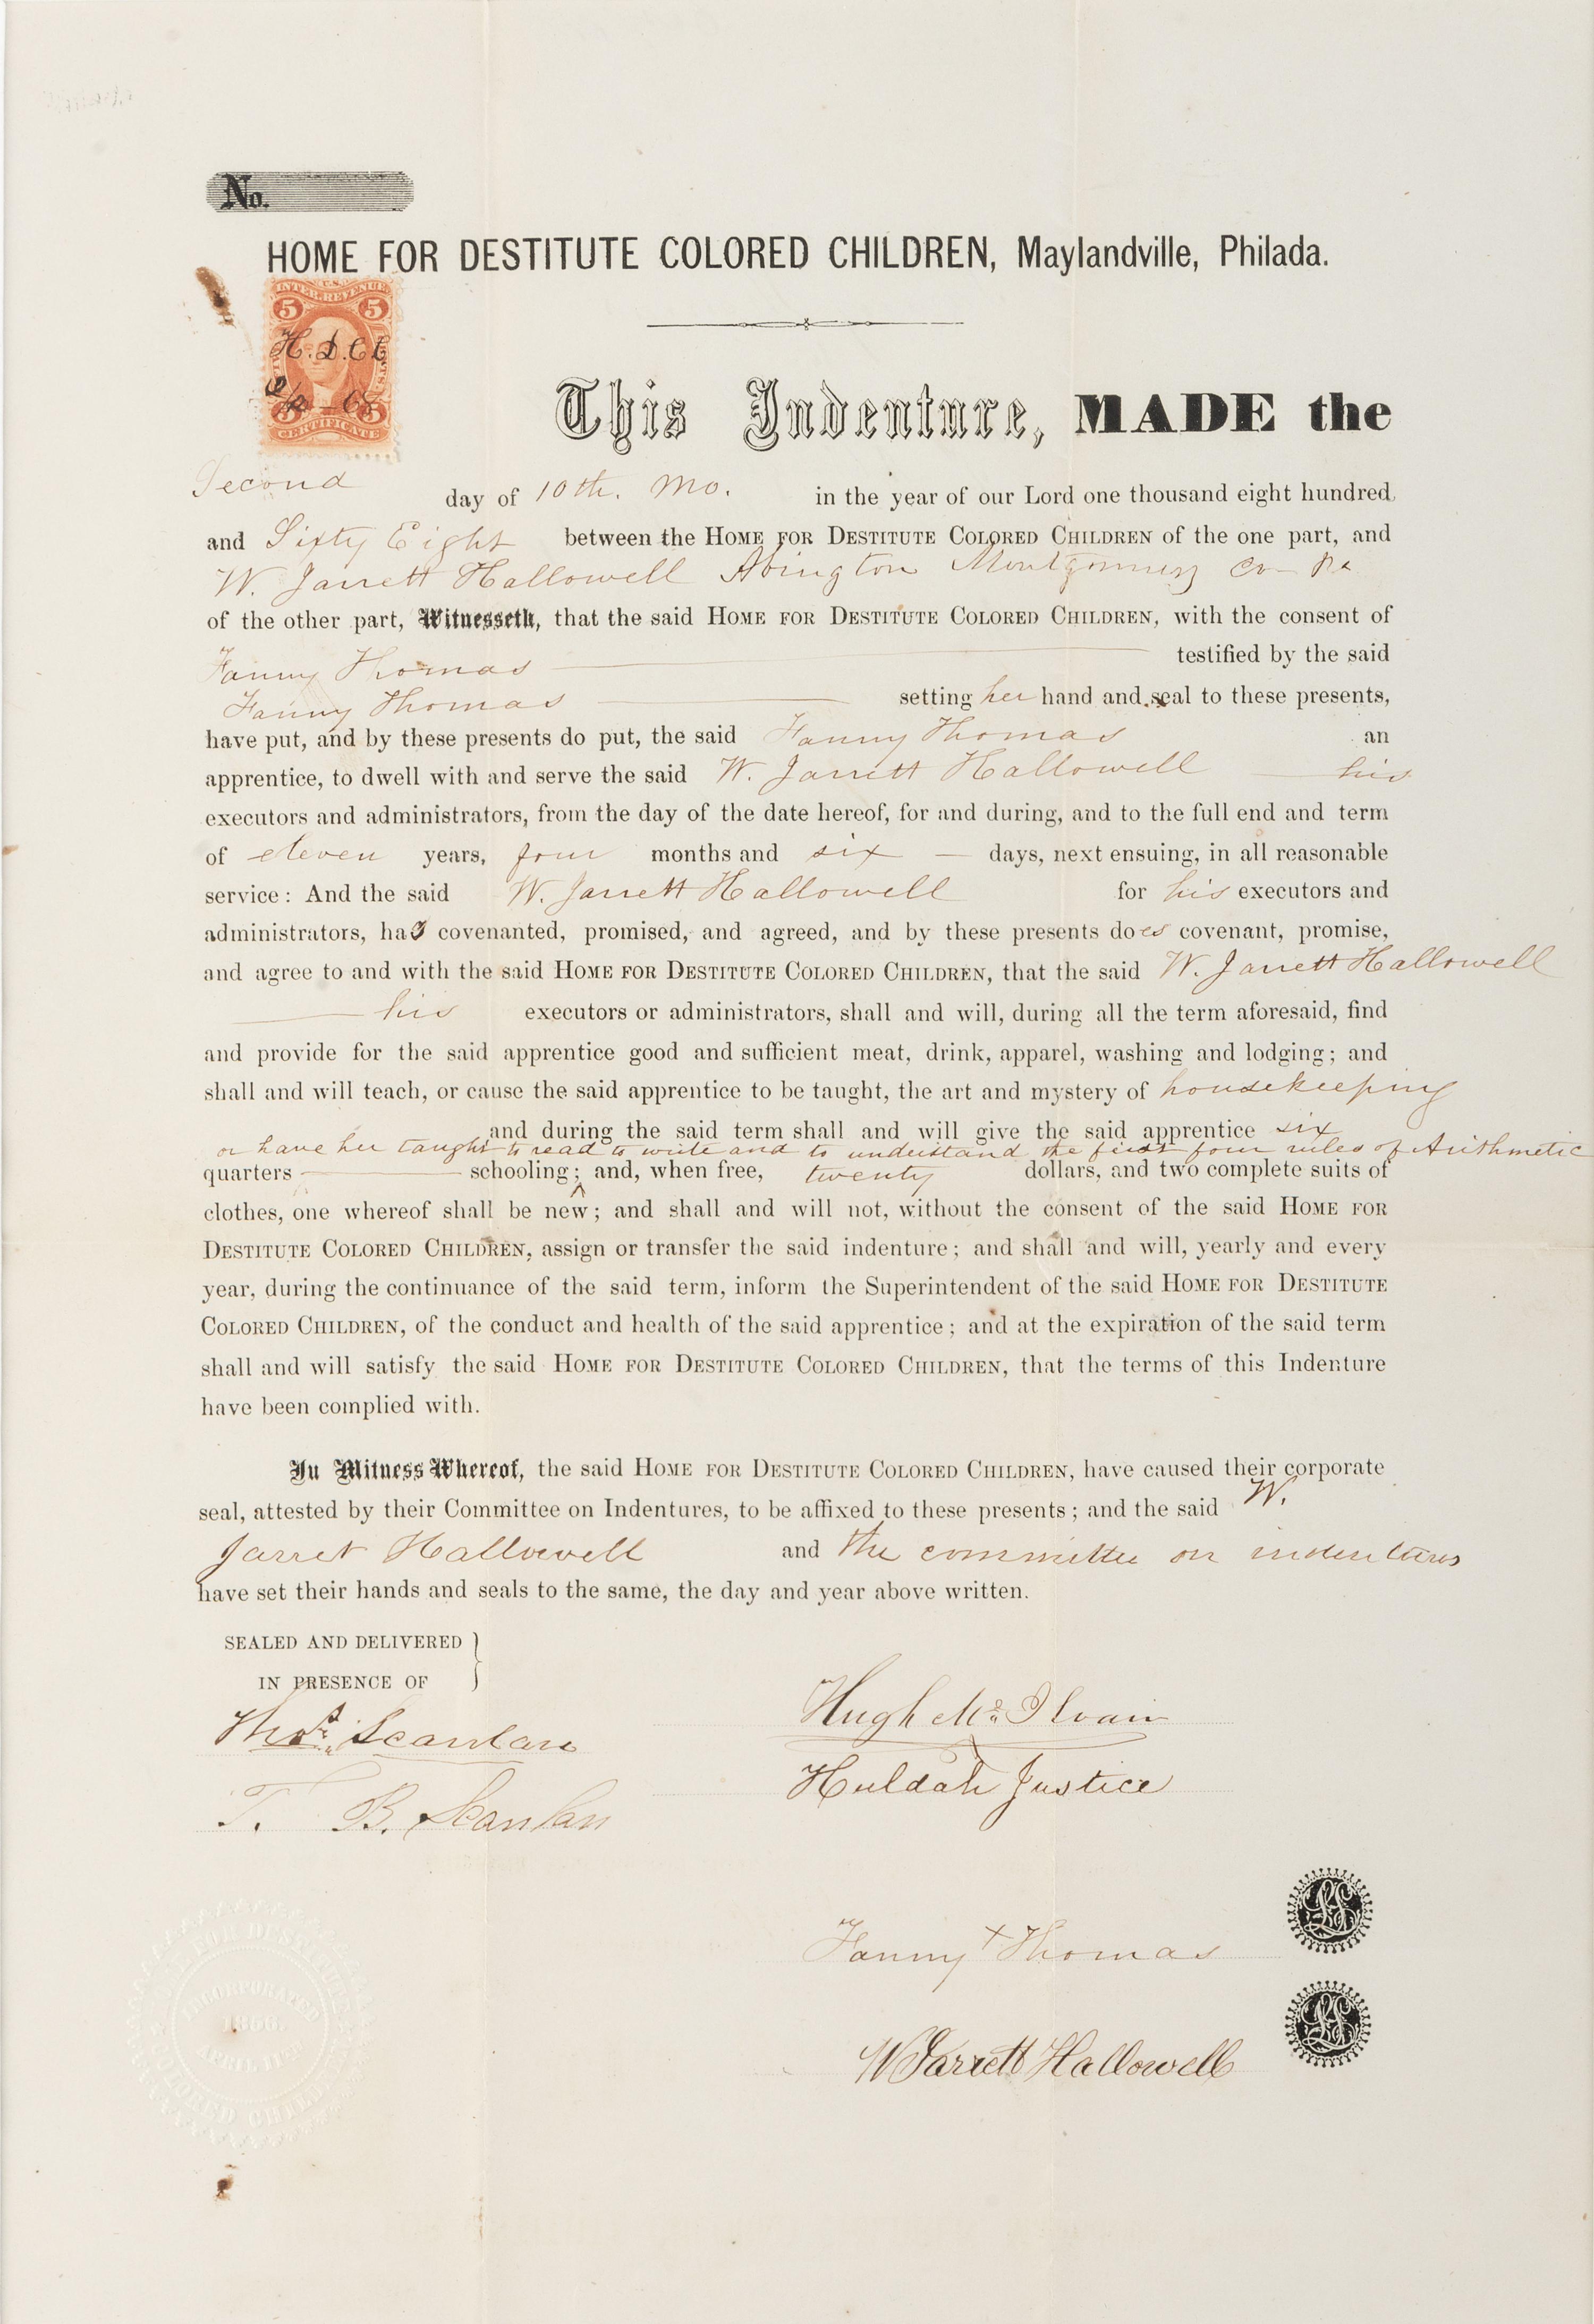 No.
HOME FOR DESTITUTE COLORED CHILDREN, Maylandville, Philada.
U.S.
INTER. REVENUE
5 5
H.D.C.C.
5 5
CERTIFICATE
This Indenture, MADE the
Second day of 10th. Mo. in the year of our Lord one thousand eight hundred
and Sixty Eight between the HOME FOR DESTITUTE COLORED CHILDREN of the one part, and
W. Jarrett Hallowell Abington Montgomery Co Pa
of the other part, Witnesseth, that the said HOME FOR DESTITUTE COLORED CHILDREN, with the consent of
Fanny Thomas testified by the said
Fanny Thomas setting her hand and seal to these presents,
have put, and by these presents do put, the said Fanny Thomas an
apprentice, to dwell with and serve the said W. Jarrett Hallowell his
executors and administrators, from the day of the date hereof, for and during, and to the full end and term
of eleven years, four months and six days, next ensuing, in all reasonable
service: And the said W. Jarrett Hallowell for his executors and
administrators, has covenanted, promised, and agreed, and by these presents does covenant, promise,
and agree to and with the said HOME FOR DESTITUTE COLORED CHILDREN, that the said W. Jarrett Hallowell
his executors or administrators, shall and will, during all the term aforesaid, find
and provide for the said apprentice good and sufficient meat, drink, apparel, washing and lodging; and
shall and will teach, or cause the said apprentice to be taught, the art and mystery of housekeeping
and during the said term shall and will give the said apprentice six
or have her taught to read to write and to understand the first four rules of Arithmetic
quarters schooling; and, when free, twenty dollars, and two complete suits of
clothes, one whereof shall be new; and shall and will not, without the consent of the said HOME FOR
DESTITUTE COLORED CHILDREN, assign or transfer the said indenture; and shall and will, yearly and every
year, during the continuance of the said term, inform the Superintendent of the said HOME FOR DESTITUTE
COLORED CHILDREN, of the conduct and health of the said apprentice; and at the expiration of the said term
shall and will satisfy the said HOME FOR DESTITUTE COLORED CHILDREN, that the terms of this Indenture
have been complied with.
In Witness Whereof, the said HOME FOR DESTITUTE COLORED CHILDREN, have caused their corporate
seal, attested by their Committee on Indentures, to be affixed to these presents; and the said W.
Jarret Hallowell and the committee on indentures
have set their hands and seals to the same, the day and year above written.
SEALED AND DELIVERED
IN PRESENCE OF
Thos. Scanlan
T. B. Scanlan
Hugh Mc.Ilvain
Huldah Justice
Fanny X Thomas
LS
W Jarrett Hallowell
LS
HOME FOR DESTITUTE
COLORED CHILDREN
INCORPORATED
1856.
APRIL 11TH